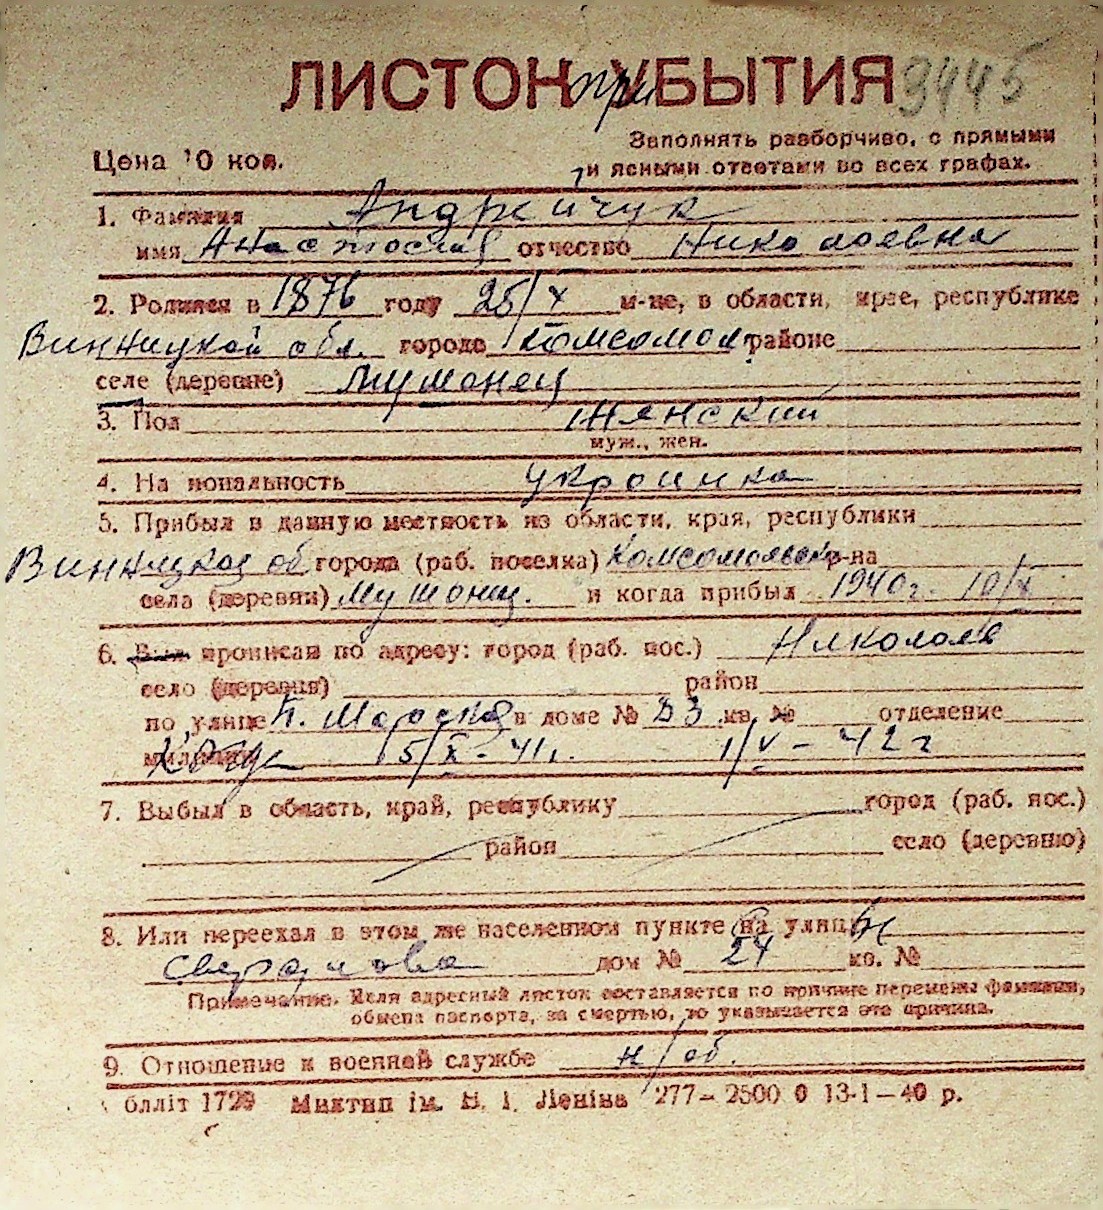 ЛИСТОК при УБЫТИЯ 9445
Цена 10 коп.
Заполнять разборчиво, с прямыми
и ясными ответами во всех графах.
1. Фамилия Андрейчук
имя Анастосия отчество Николаевна
2. Родился в 1876 году 25/X м-це, в области, крае, республике
Винницкой обл. городе Комсомол. районе
селе (деревне)
3. Пол женский
муж., жен.
4. Национальность украинка
5. Прибыл в данную местность из области, края, республики
Винницкая об города (раб. поселка) Комсомольско р-на
села (деревни) и когда прибыл 1940г. 10/X
6. Был прописан по адресу: город (раб. пос.) Николаев
село (деревня) район
по улице в доме № 53 кв. № отделение
милиции 15/X-41г. 1/V-42г
7. Выбыл в область, край, республику город (раб. пос.)
район село (деревню)
8. Или переехал в этом же населенном пункте на улицу
Свердлова дом № 24 кв. №
Примечание. Если адресный листок составляется по причине перемены фамилии,
обмена паспорта, за смертью, то указывается эта причина.
9. Отношение к военной службе н/об.
блліт 1729 Миктип ім. В. І. Леніна 277—2500 0 13-1—40 р.